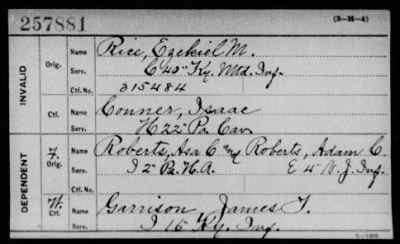 257881
(3-21-4)
INVALID
Orig.
Name Rice, Ezekiel M.
Serv. C 40" Ky. Mtd. Inf.
Ctf. No. 315484
Ctf.
Name Conner, Isaac
Serv. H 22" Pa Cav.
DEPENDENT
Orig.
Name Roberts, Asa C and Roberts, Adam C.
Serv. I 2" Pa. H.A. E 4" N.J. Inf.
Ctf.
Name Garrison, James T.
Serv. I 16 Ky. Inf.